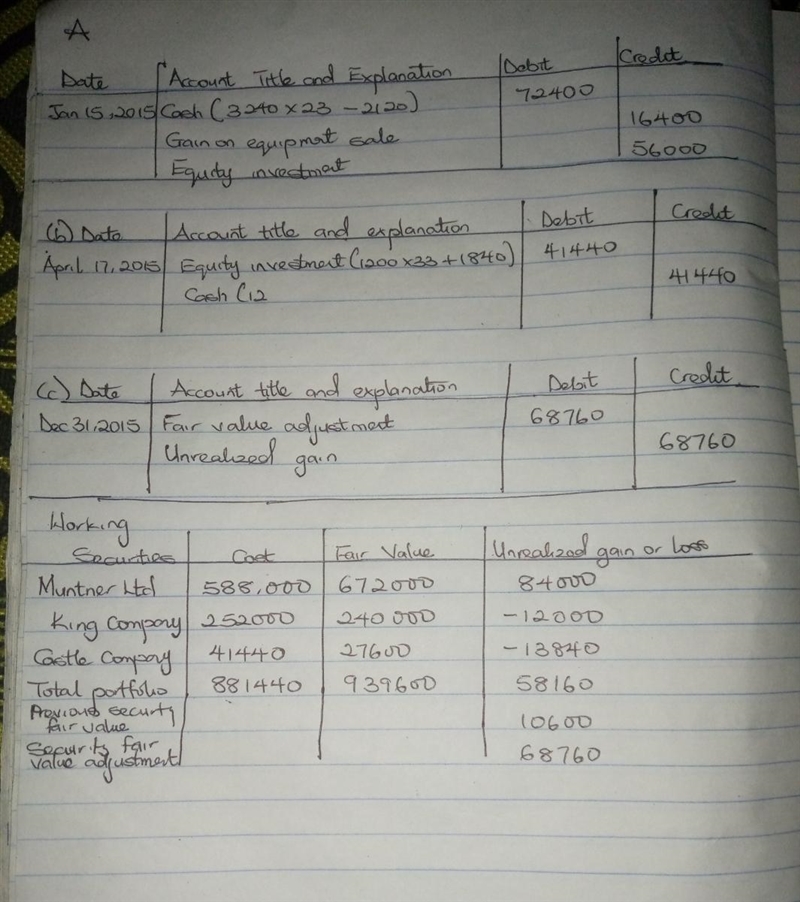 A
Date Account Title and Explanation Debit Credit
Jan 15, 2015 Cash (3240 x 23 - 2120) 72400
Gain on equipmnt sale 16400
Equity investment 56000
(b) Date Account title and explanation Debit Credit
April 17, 2015 Equity investment (1200 x 33 + 1840) 41440
Cash (12 41440
(c) Date Account title and explanation Debit Credit
Dec 31, 2015 Fair value adjustment 68760
Unrealized gain 68760
Working
Securities Cost Fair Value Unrealized gain or loss
Muntner Ltd 588,000 672000 84000
King Company 252000 240 000 -12000
Castle Company 41440 27600 -13840
Total portfolio 881440 939600 58160
Previous security
fair value 10600
Security fair
value adjustment 68760